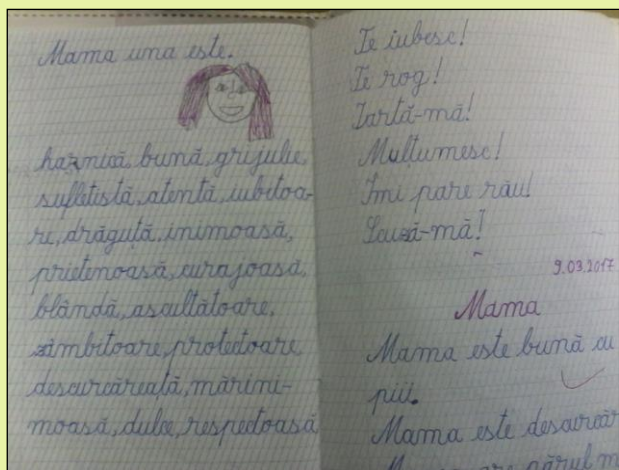 Mama una este.
harnică, bună, grijulie,
sufletistă, atentă, iubitoa-
re, drăguță, inimoasă,
prietenoasă, curajoasă,
blândă, ascultătoare,
zâmbitoare, protectoare,
descurcăreață, mărini-
moasă, dulce, respectoasă
Te iubesc!
Te rog!
Iartă-mă!
Mulțumesc!
Îmi pare rău!
Scuză-mă!
9.03.2017
Mama
Mama este bună cu
pii.
Mama este descurcăr
părul m